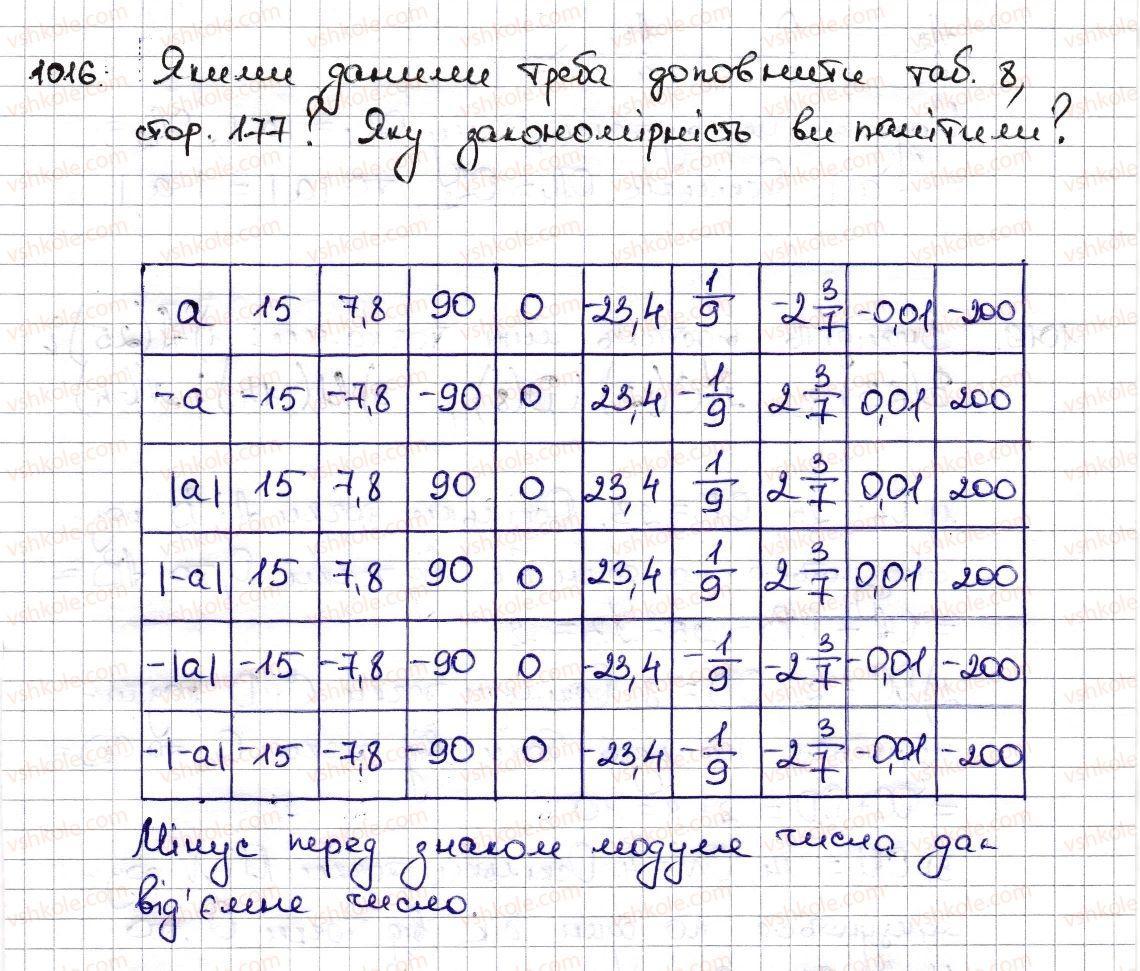 1016. Якими даними треба доповнити таб. 8,
стор. 177? Яку закономірність ви помітили?
a 15 7,8 90 0 -23,4 1/9 -2 3/7 -0,01 -200
-a -15 -7,8 -90 0 23,4 -1/9 2 3/7 0,01 200
|a| 15 7,8 90 0 23,4 1/9 2 3/7 0,01 200
|-a| 15 7,8 90 0 23,4 1/9 2 3/7 0,01 200
-|a| -15 -7,8 -90 0 -23,4 -1/9 -2 3/7 -0,01 -200
-|-a| -15 -7,8 -90 0 -23,4 -1/9 -2 3/7 -0,01 -200
Мінус перед знаком модуля числа дає
від'ємне число.
vshkole.com